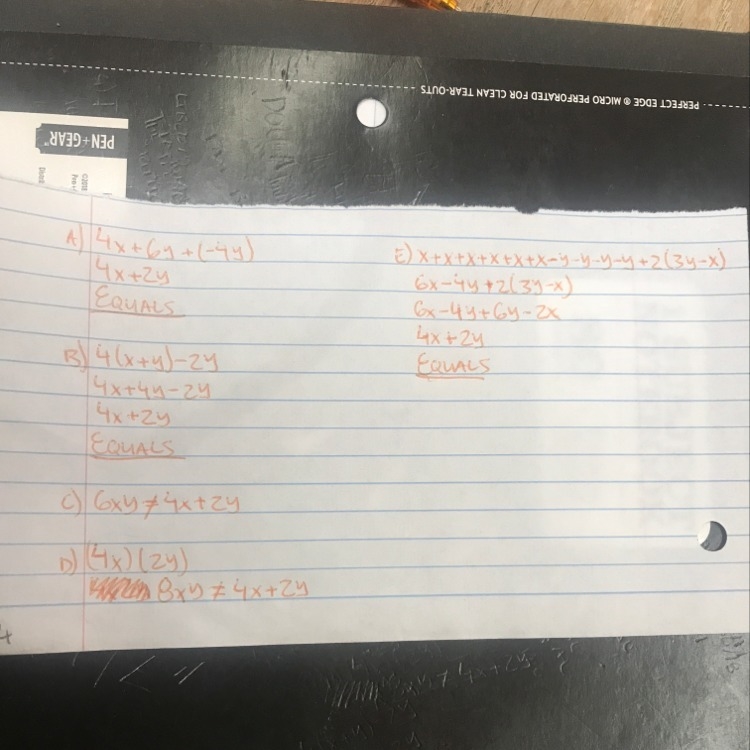 PERFECT EDGE ® MICRO PERFORATED FOR CLEAN TEAR-OUTS
PEN+GEAR
A) 4x+6y+(-4y)
4x+2y
EQUALS
B) 4(x+y)-2y
4x+4y-2y
4x+2y
EQUALS
C) 6xy≠4x+2y
D) (4x)(2y)
8xy≠4x+2y
E) x+x+x+x+x+x-y-y-y-y+2(3y-x)
6x-4y+2(3y-x)
6x-4y+6y-2x
4x+2y
EQUALS